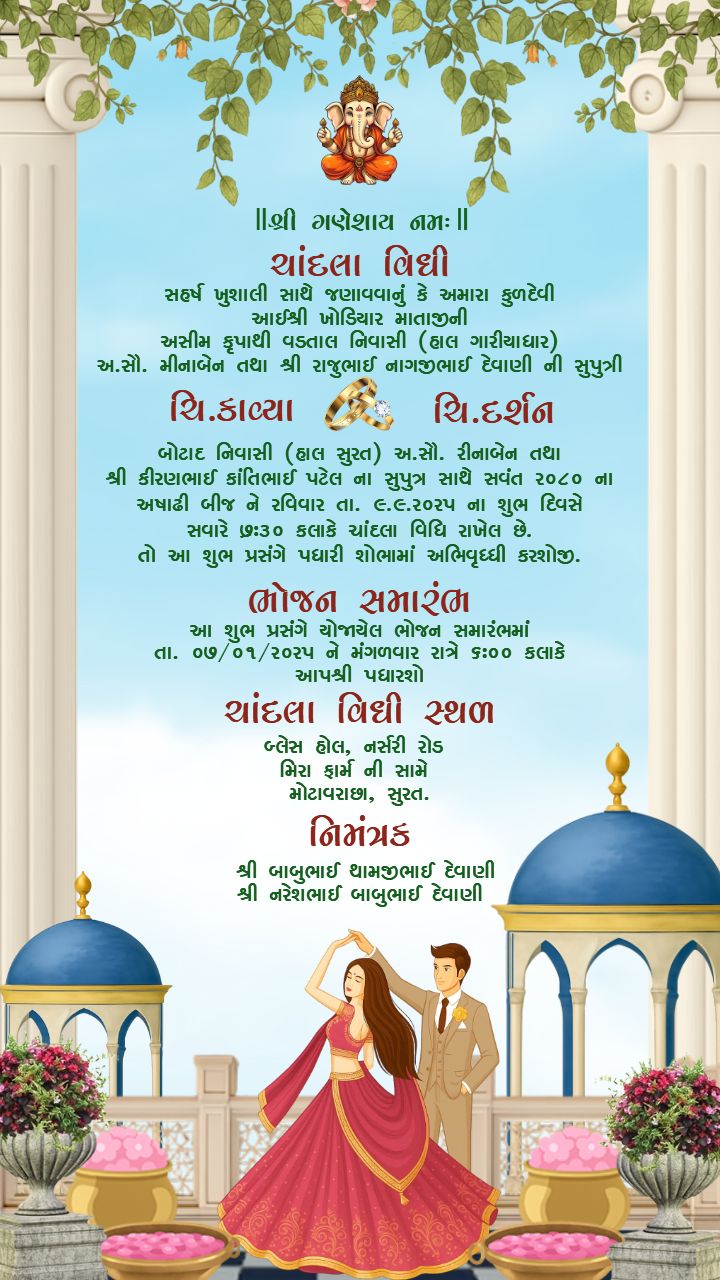 ||શ્રી ગણેશાય નમઃ||
ચાંદલા વિધી
સહર્ષ ખુશાલી સાથે જણાવવાનું કે અમારા કુળદેવી
આઈશ્રી ખોડિયાર માતાજીની
અસીમ કૃપાથી વડતાલ નિવાસી (હાલ ગારીયાધાર)
અ.સૌ. મીનાબેન તથા શ્રી રાજુભાઈ નાગજીભાઈ દેવાણી ની સુપુત્રી
ચિ.કાવ્યા ચિ.દર્શન
બોટાદ નિવાસી (હાલ સુરત) અ.સૌ. રીનાબેન તથા
શ્રી કીરણભાઈ કાંતિભાઈ પટેલ ના સુપુત્ર સાથે સવંત ૨૦૮૦ ના
અષાઢી બીજ ને રવિવાર તા. ૯.૯.૨૦૨૫ ના શુભ દિવસે
સવારે ૭:૩૦ કલાકે ચાંદલા વિધિ રાખેલ છે.
તો આ શુભ પ્રસંગે પધારી શોભામાં અભિવૃધ્ધી કરશોજી.
ભોજન સમારંભ
આ શુભ પ્રસંગે યોજાયેલ ભોજન સમારંભમાં
તા. ૦૭/૦૧/૨૦૨૫ ને મંગળવાર રાત્રે ૬:૦૦ કલાકે
આપશ્રી પધારશો
ચાંદલા વિધી સ્થળ
બ્લેસ હોલ, નર્સરી રોડ
મિરા ફાર્મ ની સામે
મોટાવરાછા, સુરત.
નિમંત્રક
શ્રી બાબુભાઈ થામજીભાઈ દેવાણી
શ્રી નરેશભાઈ બાબુભાઈ દેવાણી